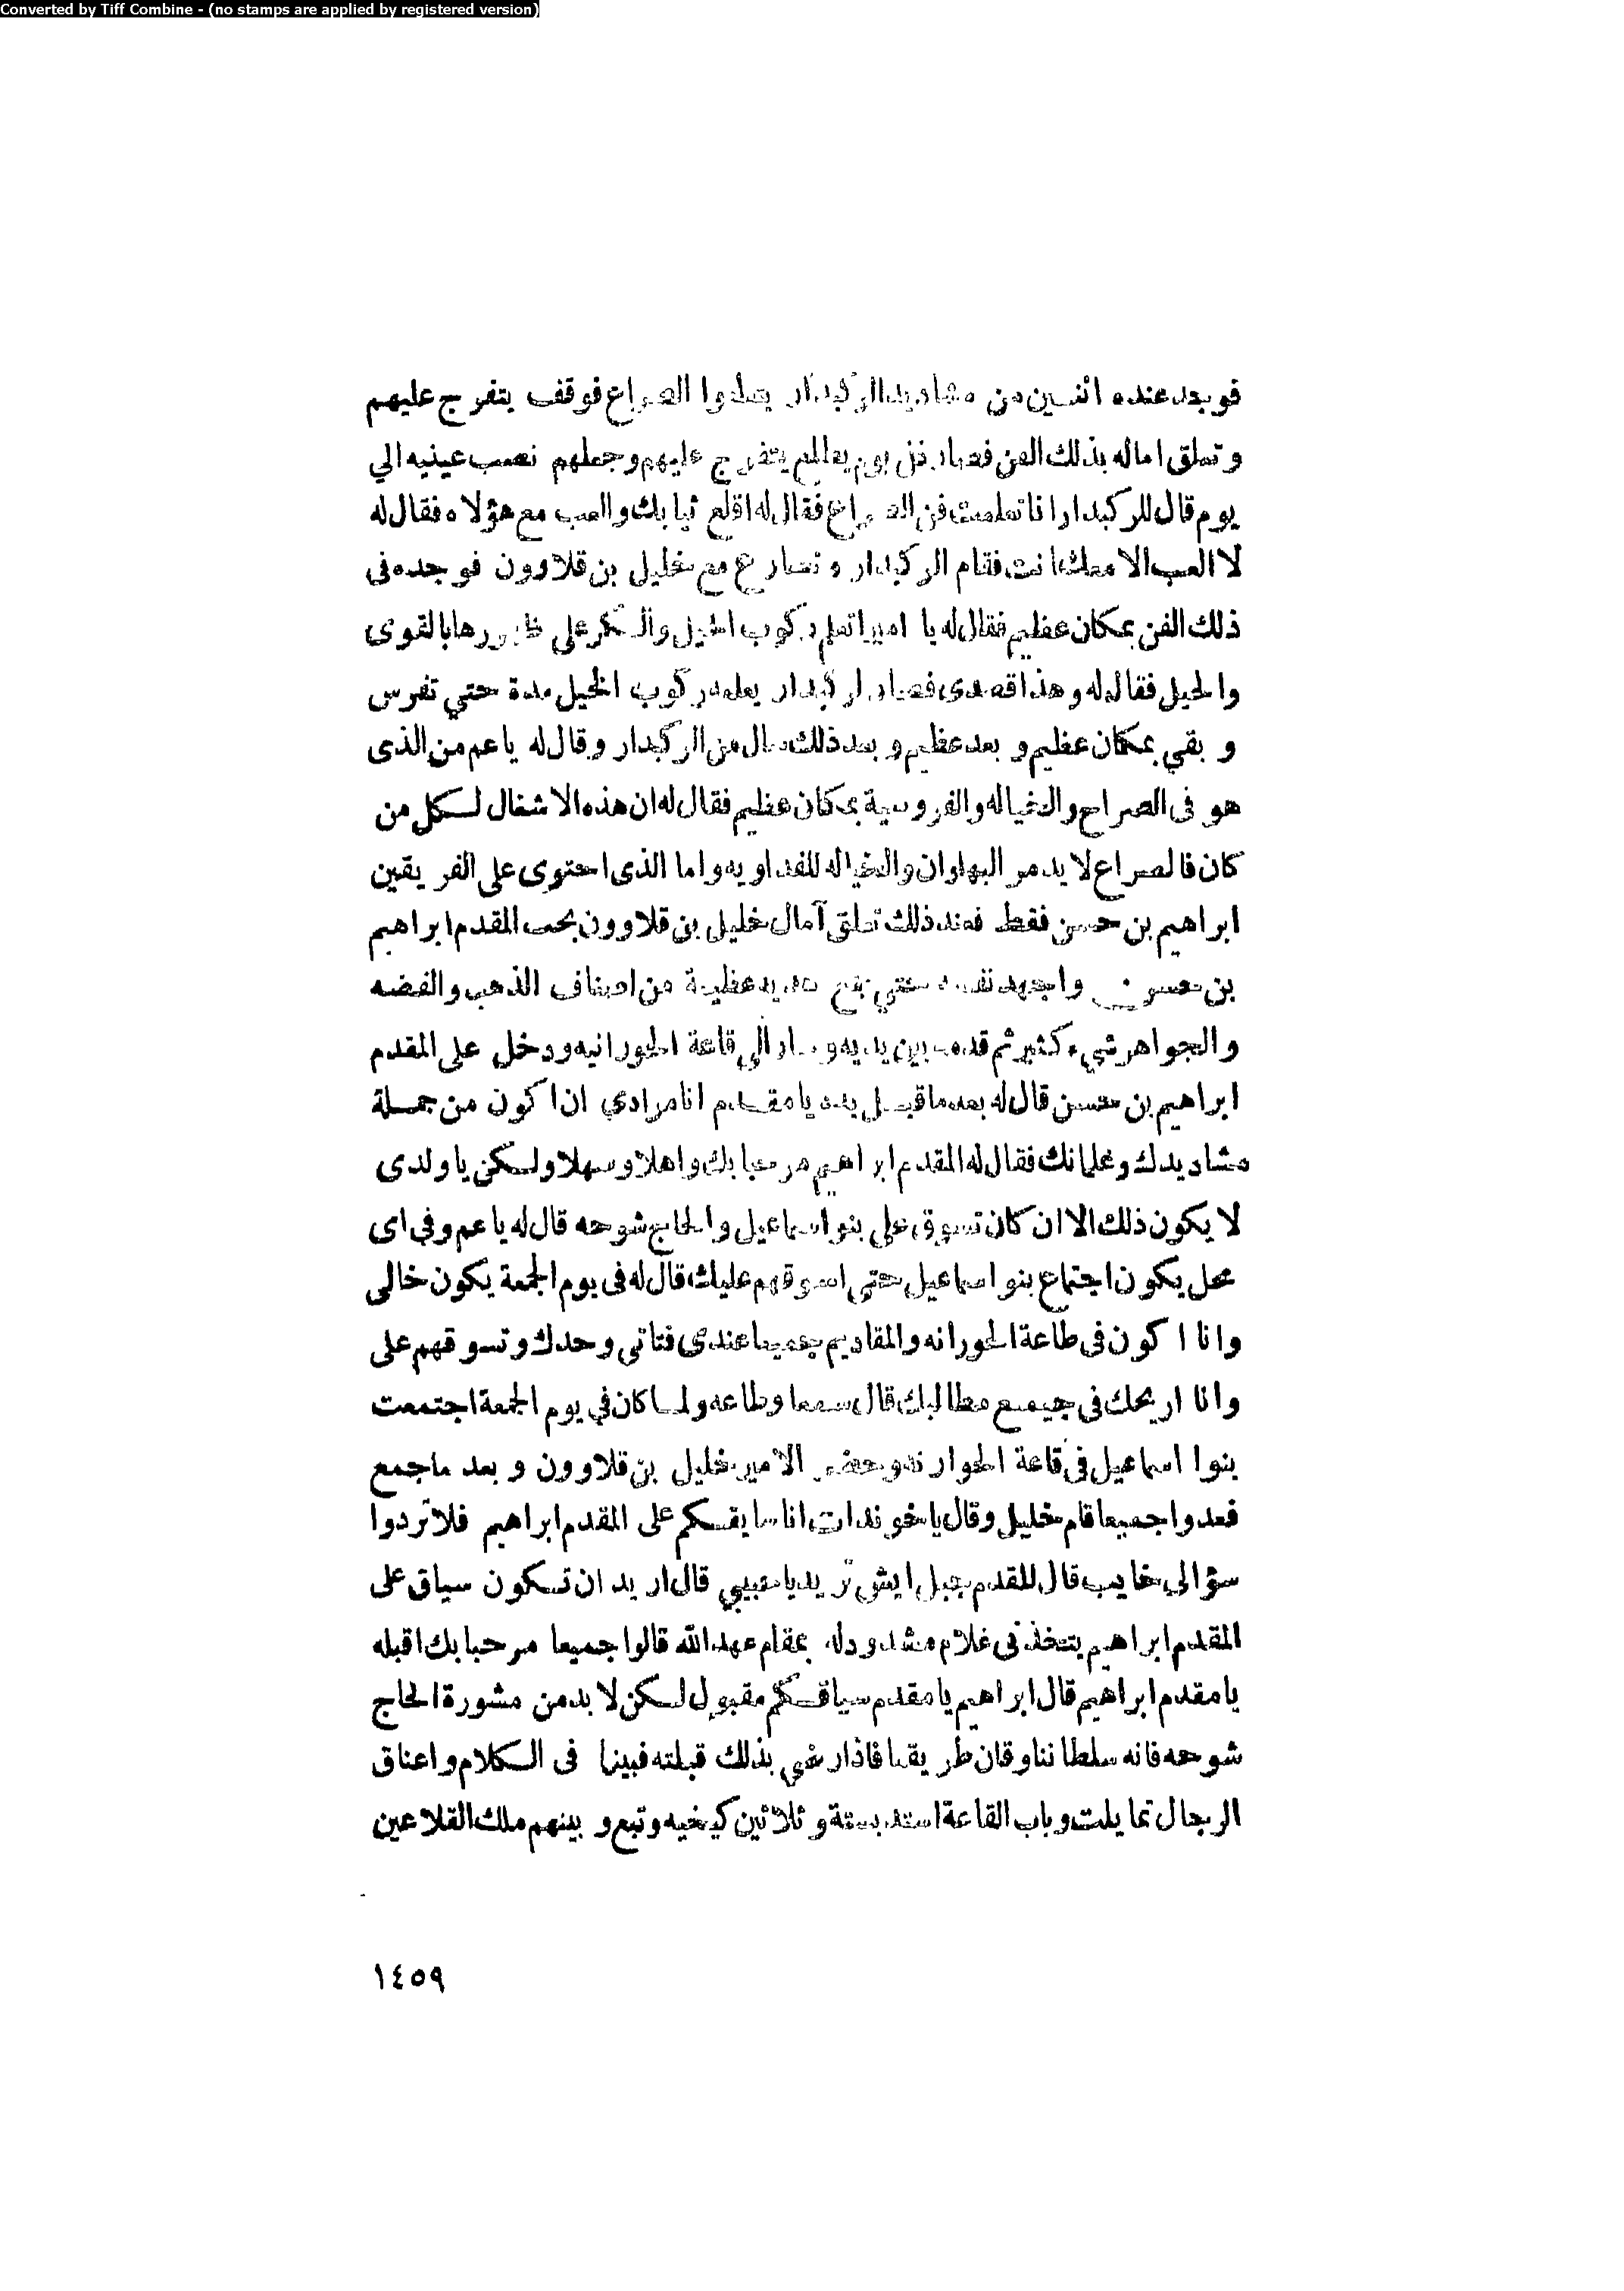 Converted by Tiff Combine - (no stamps are applied by registered version)
فوجد عنده اثنين من مشاديد الركبدار يتعلموا الصراع فوقف يتفرج عليهم
وتعلق اماله بذلك الفن فصار كل يوم يطالع يتفرج عليهم وجعلهم نصب عينيه الي
يوم قال للركبدار انا تعلمت فن الصراع فقال له اقلع ثيابك والعب مع هؤلاء فقال له
لا العب الا معك انت فقام الركبدار وتصارع مع خليل بن قلاوون فوجده فى
ذلك الفن بمكان عظيم فقال له يا امير اتعلم ركوب الخيل والكر على ظهورها بالقوى
والحيل فقال له وهذا قصدى فصار الركبدار يعلمه ركوب الخيل مدة حتي تفرس
وبقي بمكان عظيم وبعد عظيم وبعد ذلك سال من الركبدار وقال له ياعم من الذى
هو فى الصراع والخياله والفروسية بمكان عظيم فقال له ان هذه الاشغال لكل من
كان فالصراع لايدمر البهلوان والخياله للفداويه واما الذى احتوى على الفريقين
ابراهيم بن حسن فقط فعند ذلك تعلق آمال خليل بن قلاوون بحب المقدم ابراهيم
بن حسن واجهد نفسه حتي جمع هديه عظيمة من اصناف الذهب والفضه
والجواهر شيء كثير ثم قدمه بين يديه وسار الي قاعة الحورانيه ودخل على المقدم
ابراهيم بن حسن قال له بعد ما قبل يده يا مقدم انا مرادي ان اكون من جملة
مشاديدك وغلمانك فقال له المقدم ابراهيم مرحبا بك واهلا وسهلا ولكن ياولدى
لا يكون ذلك الا ان كان تسوق على بنو اسماعيل والحاج شوحه قال له ياعم وفي اى
محل يكون اجتماع بنو اسماعيل حتي اسوقهم عليك قال له فى يوم الجمعة يكون خالى
وانا اكون فى طاعة الحورانه والمقاديم جميعا عندى فتاتى وحدك وتسوقهم على
وانا اريحك فى جيمع مطالبك قال سمعا وطاعه ولما كان في يوم الجمعة اجتمعت
بنوا اسماعيل فى قاعة الحوارنه وحضر الامير خليل بن قلاوون وبعد ماجمع
قعدوا جميعا قام خليل وقال ياخوندات انا سايقكم على المقدم ابراهيم فلا تردوا
سؤالى خايب قال المقدم جبل ايش تريد ياحبيبي قال اريد ان تكون سياق على
المقدم ابراهيم يتخذنى غلام مشدود له بمقام عهد الله قالوا جميعا مرحبا بك اقبله
يا مقدم ابراهيم قال ابراهيم يا مقدم سياقكم مقبول لكن لابد من مشورة الحاج
شوحه فانه سلطاننا وقان طريقنا فاذا رضي بذلك قبلته فبينما فى الكلام واعناق
الرجال تمايلت وباب القاعة استد بستة وثلاثين كيخيه وتبع وبينهم ملك القلاعين
١٤٥٩